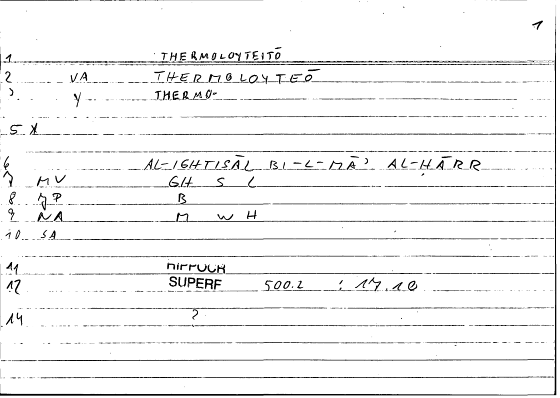 1
1 THERMOLOYTEITŌ
2 VA THERMOLOYTEŌ
3 Y THERMO-
5 X
6 AL-IGHTISĀL BI-L-MĀʾ AL-ḤĀRR
7 MV GH S L
8 JP B
9 NA M W H
10 SA
11 HIPPOCR
12 SUPERF 500.2 : 17.10
14 ?